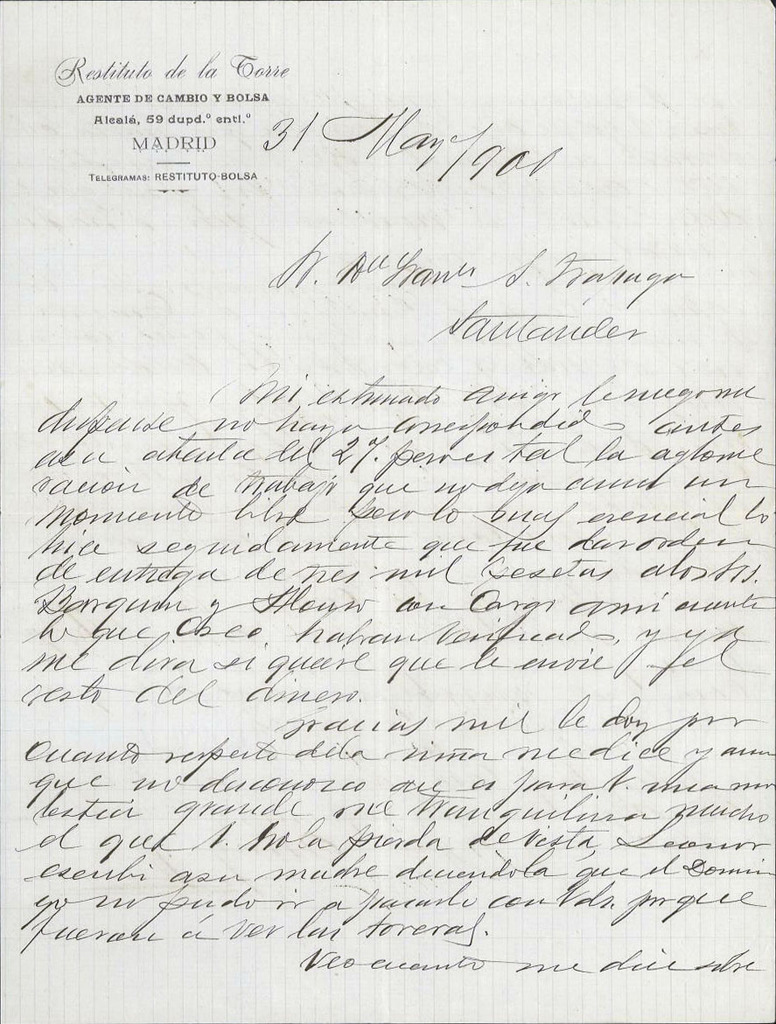 Restituto de la Torre
AGENTE DE CAMBIO Y BOLSA
Alcalá, 59 dupd.º entl.º
MADRID
TELEGRAMAS: RESTITUTO-BOLSA
31 Mayo/901
S.
Santander
Mi estimado amigo le ruego me
dispense no haya correspondido antes
a su atenta del 27. pero es tal la aglome
racion de trabajo que no deja aun un
momento libre pero lo mas esencial lo
hice seguidamente que fue dar orden
de entrega de tres mil pesetas a los Srs.
y Alonso con Cargo a mi cuenta
lo que Creo habran verificado, y ya
me dira si quiere que le envie el
resto del dinero.
Gracias mil le doy por
Cuanto respecto de la niña me dice y aun
que no desconozco que es para V. una mo
lestia grande me tranquiliza mucho
el que V. no la pierda de vista, Leonor
escribi a su madre diciendola que el Domin
go no pudo ir a pasarlo con Vds. porque
fueron á ver las toreras.
Veo cuanto me dice sobre